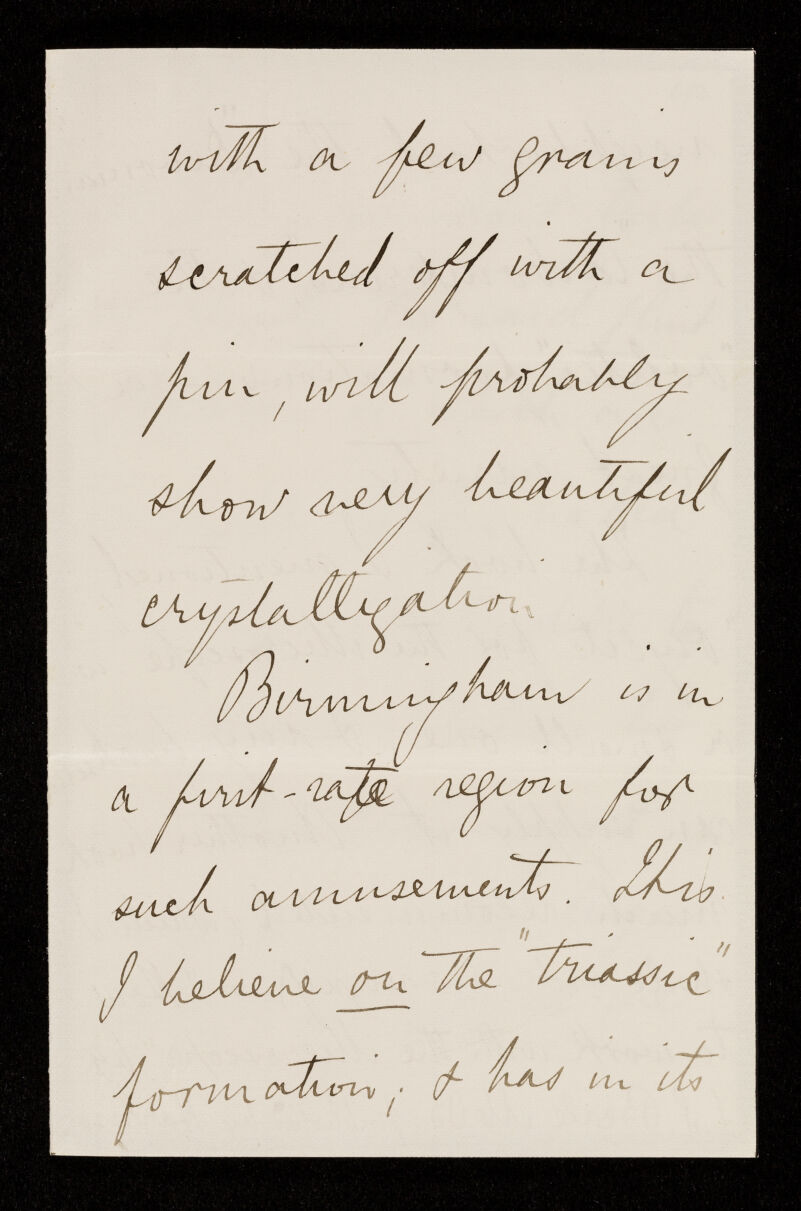 with a few grains
scratched off with a
pin, will probably
show very beautiful
crystallization
Birmingham is in
a first-rate region for
such amusements. It is
I believe on the "triassic"
formation; & has in its